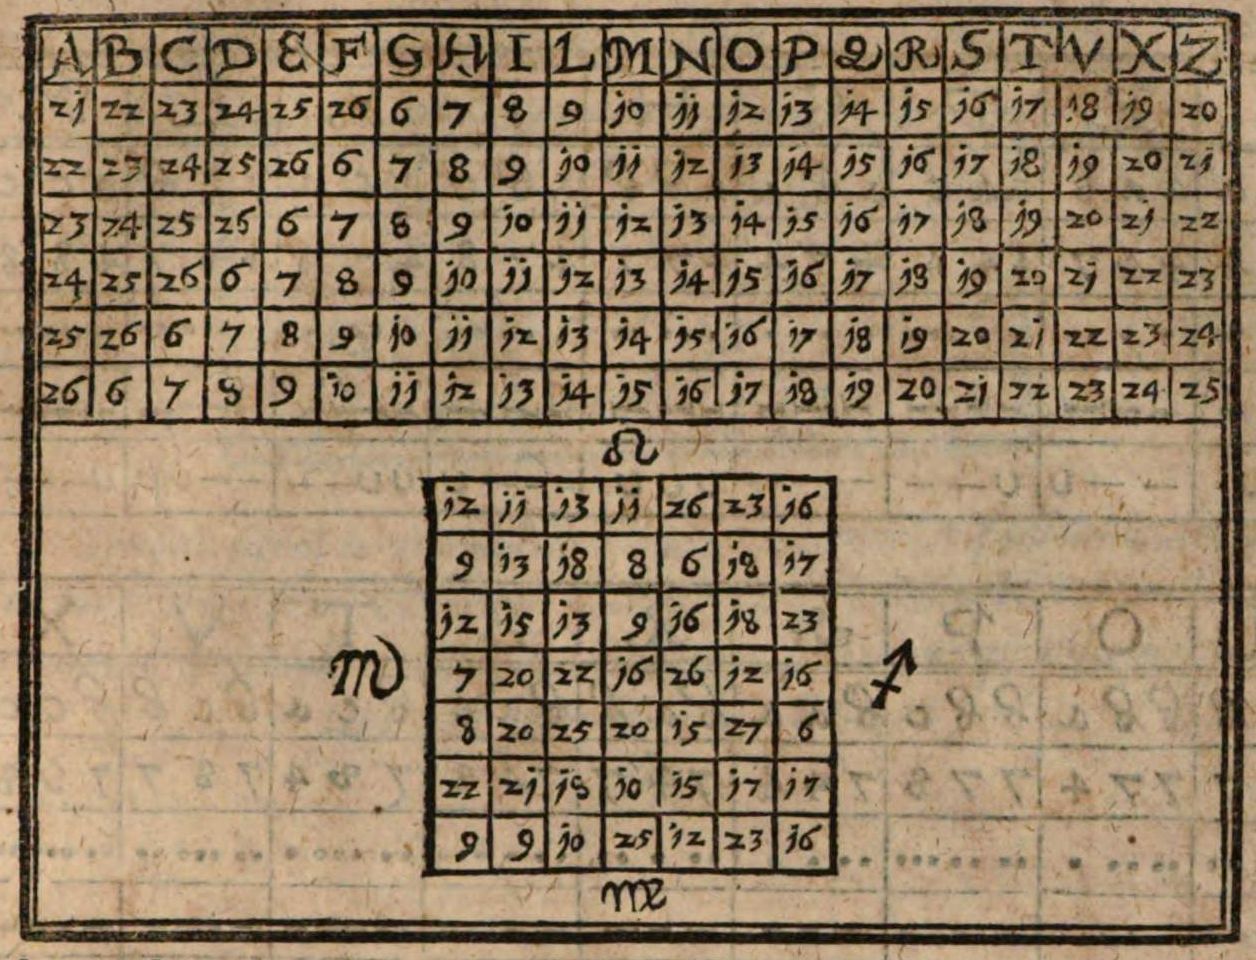 A B C D E F G H I L M N O P Q R S T V X Z
2j 22 23 24 25 26 6 7 8 9 j0 jj j2 j3 j4 j5 j6 j7 j8 j9 20
22 23 24 25 26 6 7 8 9 j0 jj j2 j3 j4 j5 j6 j7 j8 j9 20 2j
23 24 25 26 6 7 8 9 j0 jj j2 j3 j4 j5 j6 j7 j8 j9 20 2j 22
24 25 26 6 7 8 9 j0 jj j2 j3 j4 j5 j6 j7 j8 j9 20 2j 22 23
25 26 6 7 8 9 j0 jj j2 j3 j4 j5 j6 j7 j8 j9 20 2j 22 23 24
26 6 7 8 9 j0 jj j2 j3 j4 j5 j6 j7 j8 j9 20 2j 22 23 24 25
♌
j2 jj j3 jj 26 23 j6
9 j3 j8 8 6 j8 j7
j2 j5 j3 9 j6 j8 23
♏ 7 20 22 j6 26 j2 j6 ♐
8 20 25 20 j5 27 6
22 2j j8 j0 j5 j7 j7
9 9 j0 25 j2 23 j6
♍